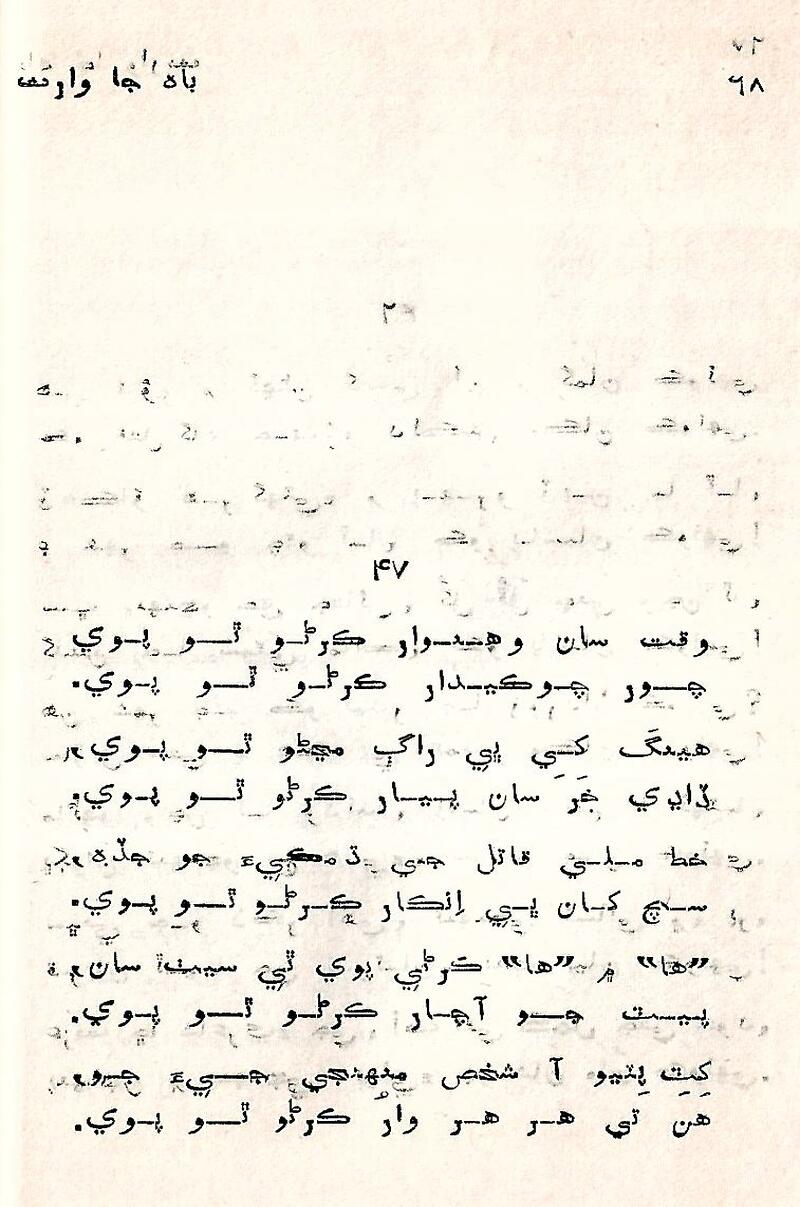 ٦٨ باھ جا وارث
۴۷
وقت سان وهنوار ڪرڻو ٿو پوي
چور چوڪيدار ڪرڻو ٿو پوي.
هينگَ کي ڀي راڳ مڃڻو ٿو پوي،
ڏاڍي خَر سان پيار ڪرڻو ٿو پوي.
خط ملي قاتل جي ڌمڪيءَ جو جڏهه،
سچ کان ڀي اِنڪار ڪرڻو ٿو پوي.
”ها“ ۾ ”ها“ ڪرڻي پوي ٿي سيٺ سان،
پيٽ جو آچار ڪرڻو ٿو پوي.
ڪِٿِ ڀِتيو آ شخص منهنجي جيءَ جو،
هن تي هر هر وارُ ڪرڻو ٿو پوي.